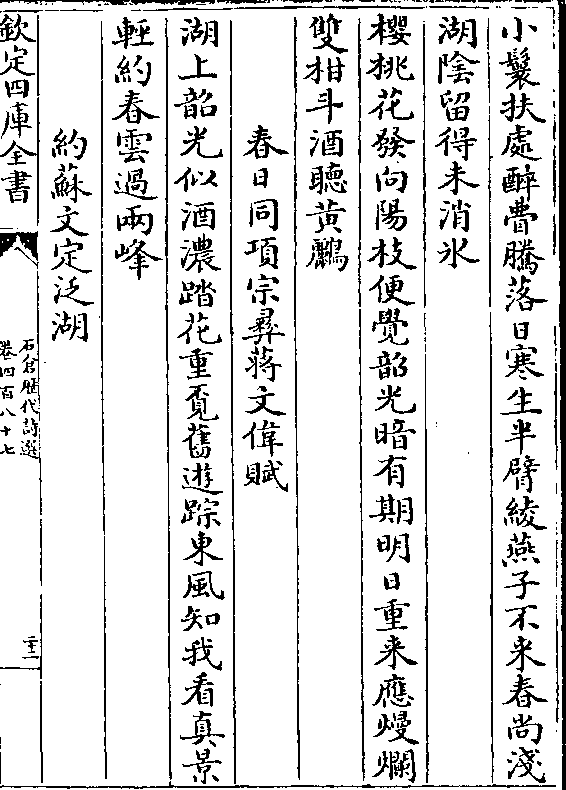 小鬟扶處醉曹騰落日寒生半臂綾燕子不來春尚淺
湖陰留得未消氷
櫻桃花發向陽枝便覺韶光暗有期明日重来應熳爛
雙柑斗酒聽黄鸝
春日同項宗彛蔣文偉賦
湖上韶光似酒濃踏花重覔舊遊踪東風知我看真景
輕約春雲過兩峰
約蘇文定泛湖
欽定四庫全書
石倉歴代詩選
卷四百八十七
二十二